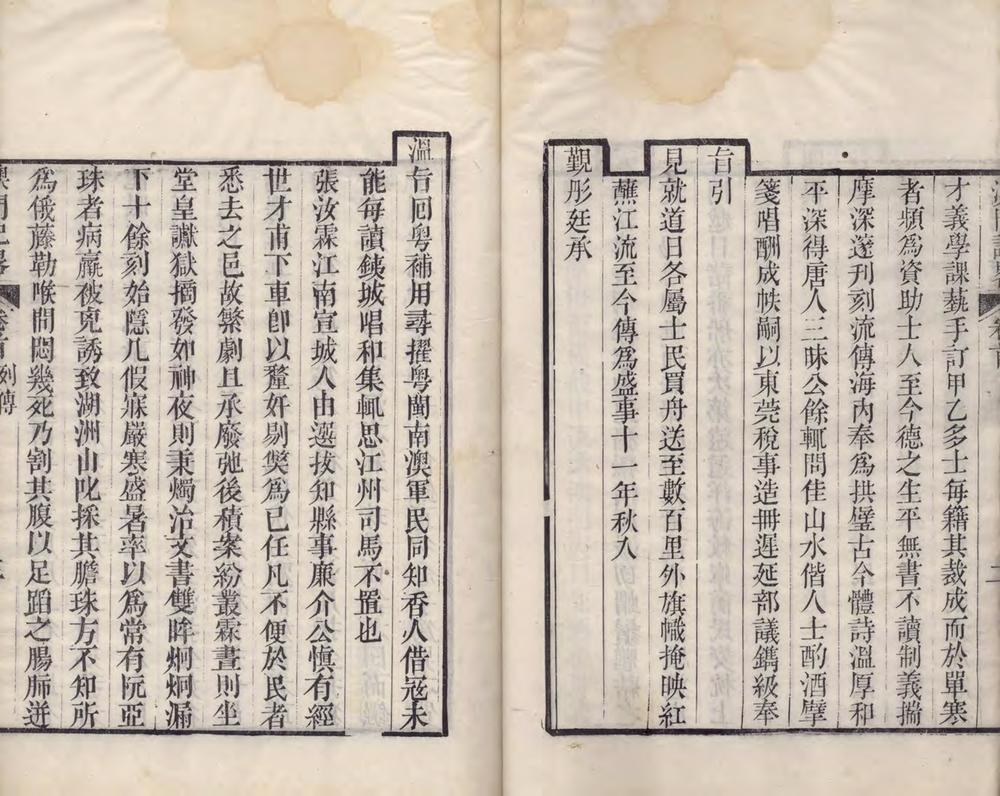 才義學課藝手訂甲乙多士每籍其裁成而於單寒
者頻爲資助士人至今德之生平無書不讀制義揣
摩深邃刋刻流傳海内奉爲拱璧古今體詩溫厚和
平深得唐人三昧公餘輒問佳山水偕人士酌酒擘
箋唱酬成帙嗣以東莞稅事造冊遲延部議鐫級奉
旨引
見就道日各屬士民買舟送至數百里外旗幟掩映紅
蕉江流至今傳爲盛事十一年秋入
覲彤廷承
溫旨囘粤補用尋擢粤閩南澳軍民同知香人借寇未
能每讀鉄城唱和集輒思江州司馬不置也
張汝霖江南宣城人由選拔知縣事廉介公愼有經
世才甫下車卽以釐奸剔獘爲已任凡不便於民者
悉去之邑故繁劇且承廢弛後積案紛叢霖晝則坐
堂皇讞獄摘發如神夜則秉燭治文書雙眸炯炯漏
下十餘刻始隱几假寐嚴寒盛暑率以爲常有阮亞
珠者病羸被兇誘致湖洲山叱採其膽珠方不知所
爲俄藤勒喉間悶幾死乃割其腹以足蹈之腸胏迸
澳門記畧 卷首 列傳